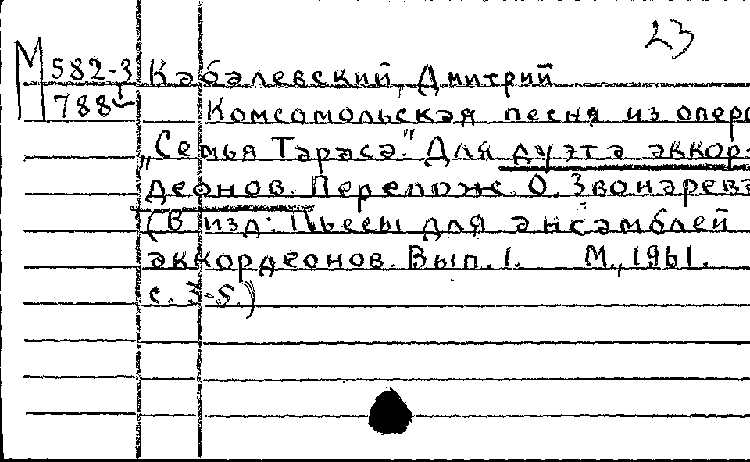 23
М 582-3 Кабалевский, Дмитрий
788 Комсомольская песня из опер
„Семья Тараса." Для дуэта аккор-
деонов. Перелож. О. Звонарева
(В изд: Пьесы для ансамблей
аккордеонов. Вып. 1. М., 1961.
с. 3-5.)